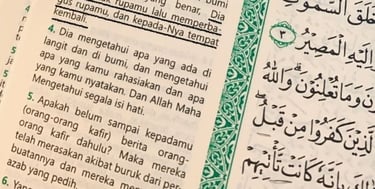 bumi
benar, Dia
rupamu lalu memperba-
gus rupamu, dan kepada-Nya tempat
kembali.
4. Dia mengetahui apa yang ada di
langit dan di bumi, dan mengetahui
apa yang kamu rahasiakan dan apa
yang kamu nyatakan. Dan Allah Maha
Mengetahui segala isi hati.
5. Apakah belum sampai kepadamu
(orang-orang kafir) berita orang-
orang kafir dahulu? Maka mereka
telah merasakan akibat buruk dari per-
buatannya dan mereka
azab yang pedih.
6. Yang
خَلَقَ السَّمٰوٰتِ
وَاِلَيْهِ الْمَصِيْرُ ٣
وَمَا تُعْلِنُوْنَۗ وَاللّٰهُ
الَّذِيْنَ كَفَرُوْا مِنْ قَبْلُ
بِاَنَّهٗ كَانَتْ تَّأْتِيْهِمْ